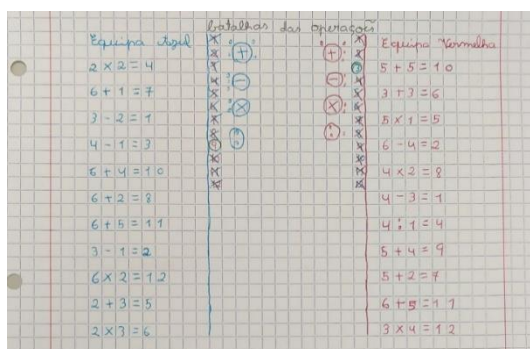 batalhas das operações
Equipa Azul
2 × 2 = 4
6 + 1 = 7
3 - 2 = 1
4 - 1 = 3
6 + 4 = 10
6 + 2 = 8
6 + 5 = 11
3 - 1 = 2
6 × 2 = 12
2 + 3 = 5
2 × 3 = 6
+
-
×
:
+
-
×
:
Equipa Vermelha
5 + 5 = 10
3 + 3 = 6
5 × 1 = 5
6 - 4 = 2
4 × 2 = 8
4 - 3 = 1
4 : 1 = 4
5 + 4 = 9
5 + 2 = 7
6 + 5 = 11
3 × 4 = 12